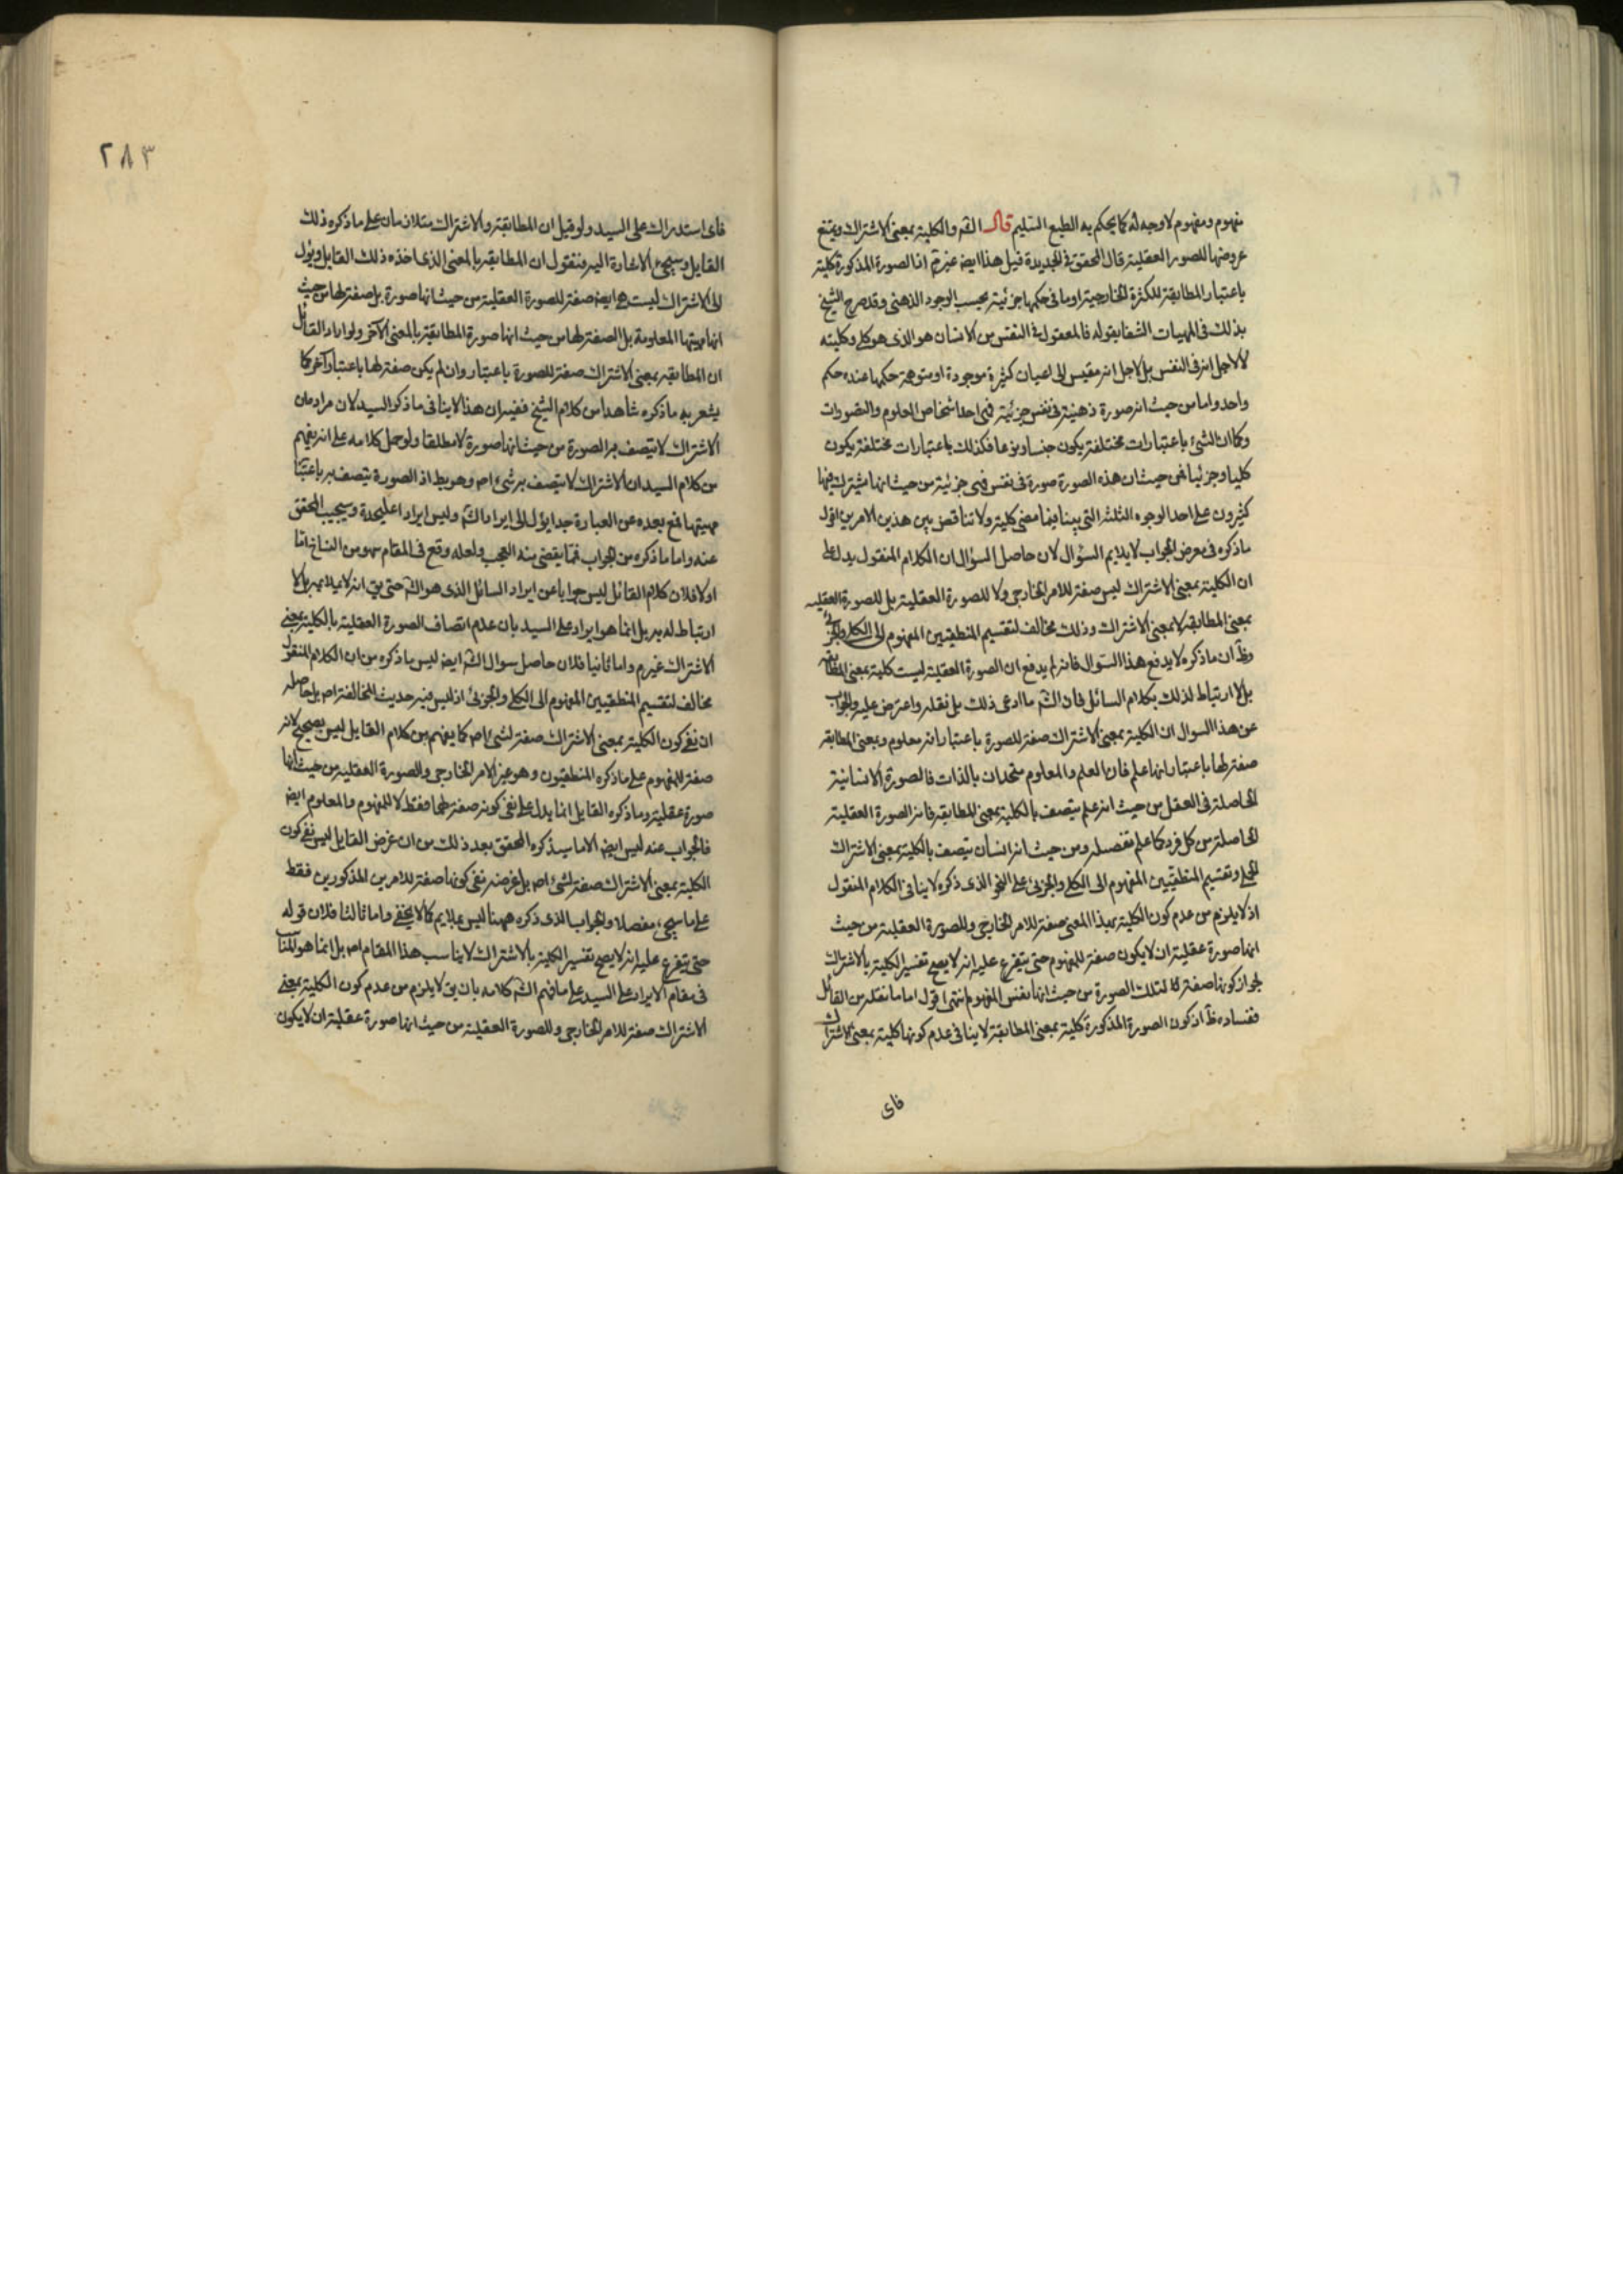 مفهوم ومفهوم لا وجه له كما يحكم به الطبع السليم قال الش والكلية بمعنى الاشتراك ويمتنع
عروضها للصور العقلية قال المحقق في الجديدة قيل هذا ايض غير تم اذ الصورة المذكورة كلية
باعتبار المطابقة للكثرة الخارجية او ما في حكمها جزئية بحسب الوجود الذهني وقد صرح الشيخ
بذلك في الهيات الشفا بقوله فالمعقول في النفس من الانسان هو الذي هو كلي وكليته
لا لاجل انه في النفس بل لاجل انه مقيس الى اعيان كثيرة موجودة او متوهمة حكمها عنده حكم
واحد واما من حيث انه صورة ذهنية في نفس جزئية فهى احد اشخاص العلوم والتصورات
وكما ان الشئ باعتبارات مختلفة يكون جنسا ونوعا فكذلك باعتبارات مختلفة يكون
كليا وجزئيا فمن حيث ان هذه الصورة صورة في نفس فهي جزئية ومن حيث انها يشترك فيها
كثيرون على احد الوجوه الثلثة التي بينا فيما مضى كلية ولا تناقض بين هذين الامرين اقول
ما ذكره في معرض الجواب لا يلايم السؤال لان حاصل السؤال ان الكلام المنقول يدل على
ان الكلية بمعنى الاشتراك ليس صفة للامر الخارجي ولا للصورة العقلية بل للصورة العقليه
بمعنى المطابقة لا بمعنى الاشتراك وذلك مخالف لتقسيم المنطقيين المفهوم الى الكلي والجزئي
وظ ان ما ذكره لا يدفع هذا السؤال فانه لم يدفع ان الصورة العقلية ليست كلية بمعنى المطابقه
بل لا ارتباط لذلك بكلام السائل فان الش ما ادعى ذلك بل نقله واعترض عليه والجواب
عن هذا السوال ان الكلية بمعنى الاشتراك صفة للصورة باعتبار انه معلوم وبمعنى المطابقه
صفة لها باعتبار انها علم فان العلم والمعلوم متحدان بالذات فالصورة الانسانية
الحاصلة في العقل من حيث انه علم يتصف بالكلية بمعنى المطابقه فانه الصورة العقلية
الحاصلة من كل فرد كما علم تفصيله ومن حيث انه انسان يتصف بالكلية بمعنى الاشتراك
الحملي وتقسيم المنطقيين المفهوم الى الكلي والجزئي على النحو الذي ذكره لا ينافي الكلام المنقول
اذ لا يلزم من عدم كون الكلية بهذا المعنى صفة للامر الخارجي وللصورة العقلية من حيث
انها صورة عقلية ان لا يكون صفة للمفهوم حتى يتفرع عليه انه لا يصح تفسير الكلية بالاشتراك
لجواز كونها صفة لتلك الصورة من حيث انها نفس المفهوم انتهى اقول اما ما نقله من القائل
ففساده ظ اذ كون الصورة المذكورة كلية بمعنى المطابقة لا ينافي عدم كونها كلية بمعنى الاشتراك
فاى
٢٨٣
فاى استدراك على السيد ولو قيل ان المطابقة والاشتراك متلازمان على ما ذكره ذلك
القايل وسيجئ الاشارة اليه فنقول ان المطابقه بالمعنى الذي اخذه ذلك القايل ويؤل
الى الاشتراك ليست هي ايض صفة للصورة العقلية من حيث انها صورة بل صفة لها من حيث
انها مهيتها المعلومة بل الصفة لها من حيث انها صورة المطابقة بالمعنى الآخر ولو اراد القائل
ان المطابقه بمعنى الاشتراك صفة للصورة باعتبار وان لم يكن صفة لها باعتبار آخر كما
يشعر به ما ذكره شاهدا من كلام الشيخ ففيه ان هذا لا ينافي ما ذكره السيد لان مراده ان
الاشتراك لا يتصف به الصورة من حيث انها صورة لا مطلقا ولو حمل كلامه على انه يفهم
من كلام السيد ان الاشتراك لا يتصف به شئ اصل وهو بط اذ الصورة يتصف به باعتبار
مهيتها فمع بعده عن العبارة جدا يؤل الى ايراد الش وليس ايرادا عليحدة وسيجيب المحقق
عنه واما ما ذكره من الجواب فمما يقضى منه العجب ولعله وقع في المقام سهو من الناسخ اما
اولا فلان كلام القائل ليس جوابا عن ايراد السائل الذي هو الش حتى يق انه لا يلايمه بل لا
ارتباط له به بل انما هو ايراد على السيد بان عدم اتصاف الصورة العقلية بالكلية بمعنى
الاشتراك غير م واما ثانيا فلان حاصل سوال الش ايض ليس ما ذكره من ان الكلام المنقول
مخالف لتقسيم المنطقيين المفهوم الى الكلي والجزئي اذ ليس فيه حديث المخالفة اصل بل حاصله
ان نفي كون الكلية بمعنى الاشتراك صفة لشئ اصل كما يفهم من كلام القايل ليس بصحيح لانه
صفة للمفهوم على ما ذكره المنطقيون وهو غير الامر الخارجي والصورة العقلية من حيث انها
صورة عقلية وما ذكره القايل انما يدل على نفي كونه صفة لهما فقط لا للمفهوم والمعلوم ايض
فالجواب عنه ليس ايض الا ما سيذكره المحقق بعد ذلك من ان غرض القايل ليس نفي كون
الكلية بمعنى الاشتراك صفة لشئ اصل بل غرضه نفي كونها صفة للامرين المذكورين فقط
على ما سيجئ مفصلا والجواب الذي ذكره ههنا ليس بملايم كما لا يخفى واما ثالثا فلان قوله
حتى يتفرع عليه انه لا يصح تفسير الكلية بالاشتراك لا يناسب هذا المقام اصل بل انما هو المناسب
في مقام الايراد على السيد على ما فهم الش كلامه بان يق لا يلزم من عدم كون الكلية بمعنى
الاشتراك صفة للامر الخارجي وللصورة العقلية من حيث انها صورة عقلية ان لا يكون